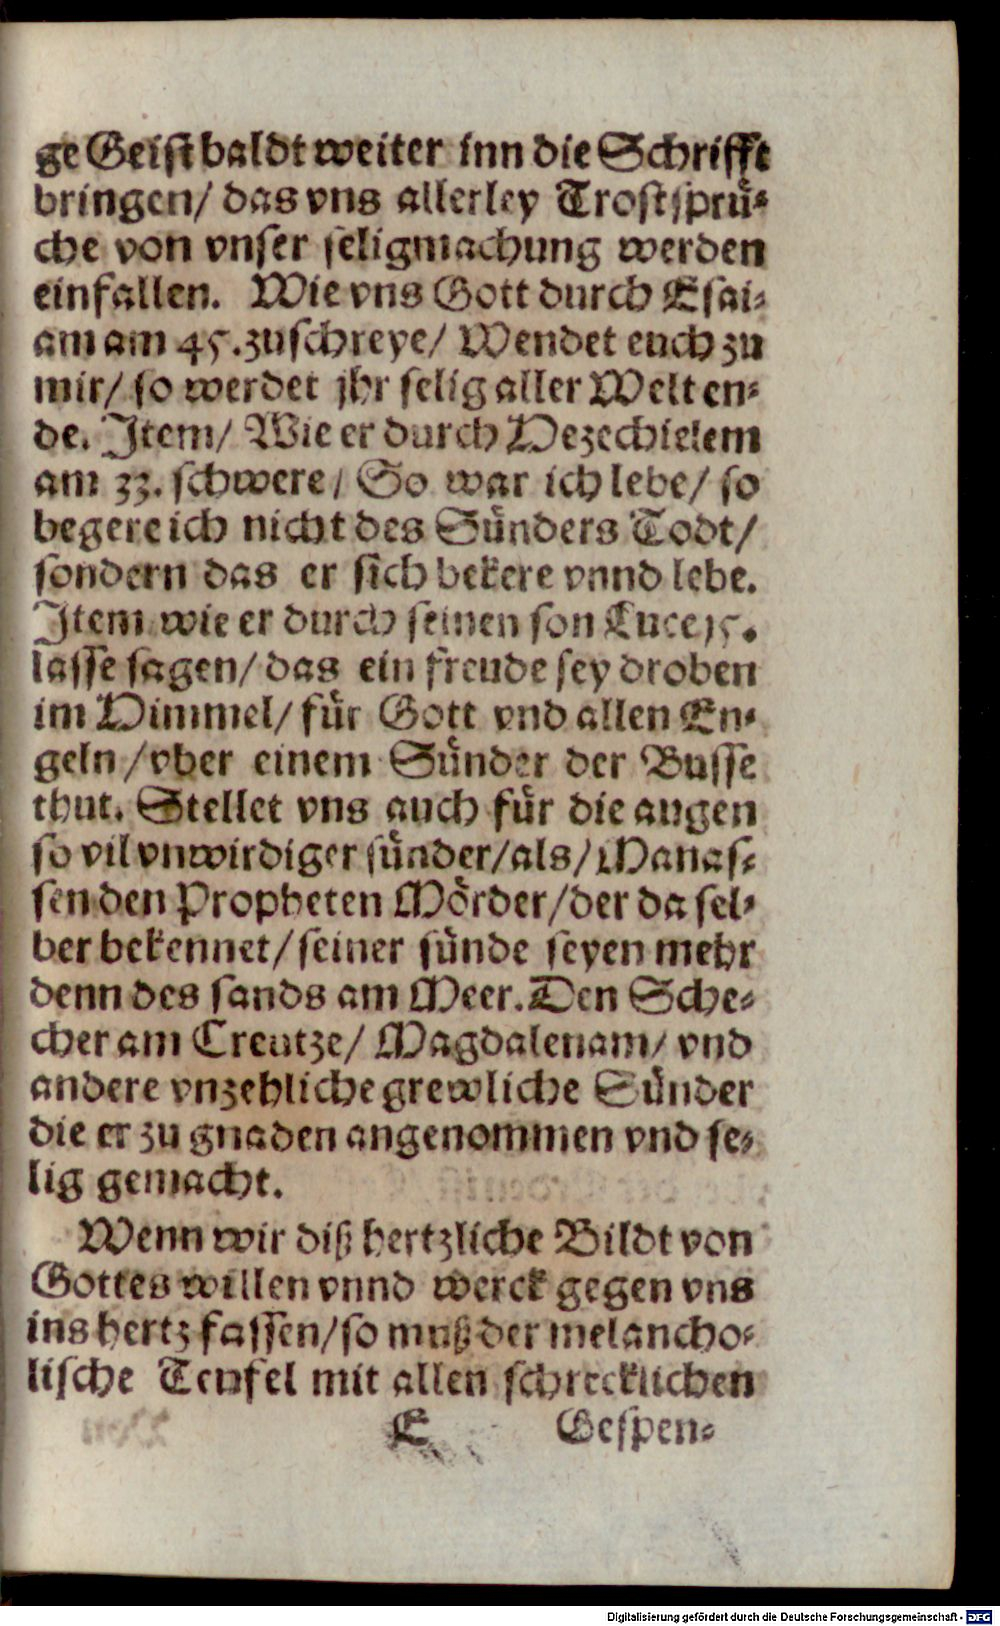 ge Geist baldt weiter inn die Schrifft
bringen/ das vns allerley Trostsprü-
che von vnser seligmachung werden
einfallen. Wie vns Gott durch Esai-
am am 45. zuschreye/ Wendet euch zu
mir/ so werdet jhr selig aller Welt en-
de. Item/ Wie er durch Hezechielem
am 33. schwere/ So war ich lebe/ so
begere ich nicht des Sünders Todt/
sondern das er sich bekere vnnd lebe.
Item wie er durch seinen son Luce 15.
lasse sagen/ das ein freude sey droben
im Himmel/ für Gott vnd allen En-
geln/ vber einem Sünder der Busse
thut. Stellet vns auch für die augen
so vil vnwirdiger sünder/ als/ Manas-
sen den Propheten Mörder/ der da sel-
ber bekennet/ seiner sünde seyen mehr
denn des sands am Meer. Den Sche-
cher am Creutze/ Magdalenam/ vnd
andere vnzehliche grewliche Sünder
die er zu gnaden angenommen vnd se-
lig gemacht.
Wenn wir diß hertzliche Bildt von
Gottes willen vnnd werck gegen vns
ins hertz fassen/ so muß der melancho-
lische Teufel mit allen schrecklichen
E Gespen-
Digitalisierung gefördert durch die Deutsche Forschungsgemeinschaft - DFG